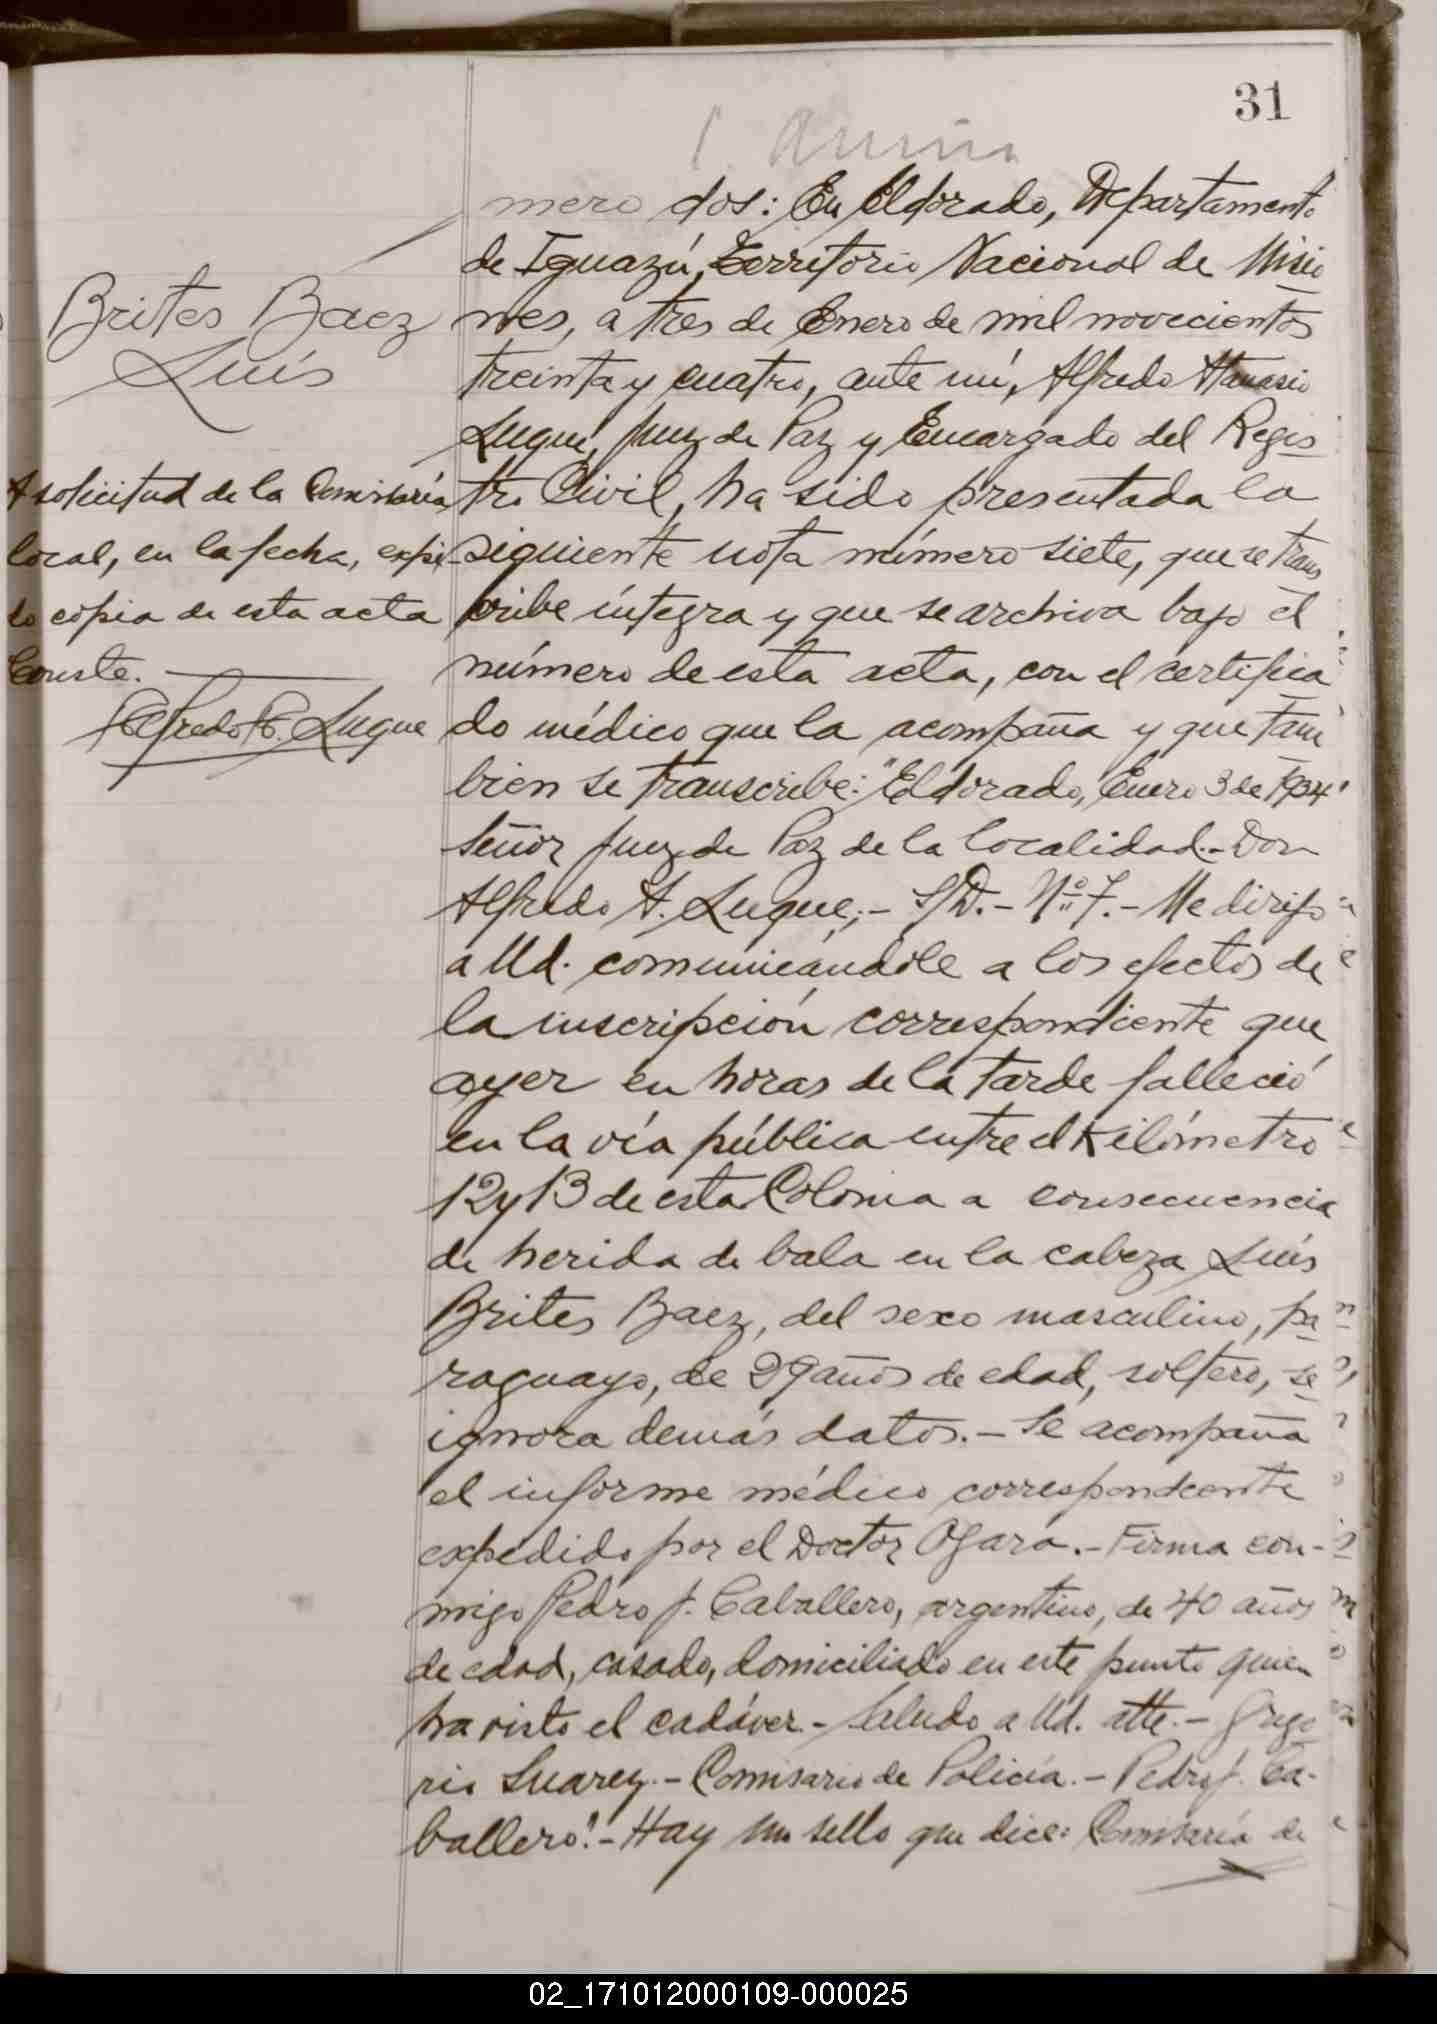 31
mero dos: En Eldorado, Departamento
de Iguazú, Territorio Nacional de Misio
nes, a tres de Enero de mil novecientos
treinta y cuatro, ante mí, Alfredo Atanasio
Luque, Juez de Paz y Encargado del Regis
tro Civil, ha sido presentada la
siguiente nota número siete, que se trans
cribe íntegra y que se archiva bajo el
número de esta acta, con el certifica
do médico que la acompaña y que tam
bien se transcribe: "Eldorado, Enero 3 de 1934"
Señor Juez de Paz de la localidad.- Don
Alfredo A. Luque,- S/D.- Nº 7.- Me dirijo
a Ud. comunicándole a los efectos de
la inscripción correspondiente que
ayer en horas de la tarde falleció
en la vía pública entre el Kilómetro
12 y 13 de esta Colonia a consecuencia
de herida de bala en la cabeza Luís
Brites Baez, del sexo masculino, pa
raguayo, de 29 años de edad, soltero, se
ignora demás datos.- Se acompaña
el informe médico correspondiente
expedido por el Doctor Ogara.- Firma con-
migo Pedro J. Caballero, argentino, de 40 años
de edad, casado, domiciliado en este punto quien
ha visto el cadáver.- Saludo a Ud. atte.- Grego
rio Suarez.- Comisario de Policía.- Pedro J. Ca-
ballero".- Hay un sello que dice: Comisaría de
Brites Baez
Luís
A solicitud de la Comisaría
local, en la fecha, expi-
do copia de esta acta
Conste.
Alfredo A. Luque
02_171012000109-000025